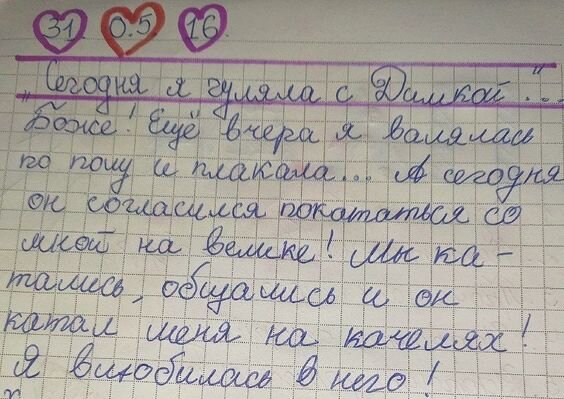 31. 0.5 16.
„Сегодня я гуляла с Димкой..."
Боже! Ещё вчера я валялась
по полу и плакала... А сегодня
он согласился покататься со
мной на велике! Мы ка-
тались, общались и он
катал меня на качелях!
Я влюбилась в него!